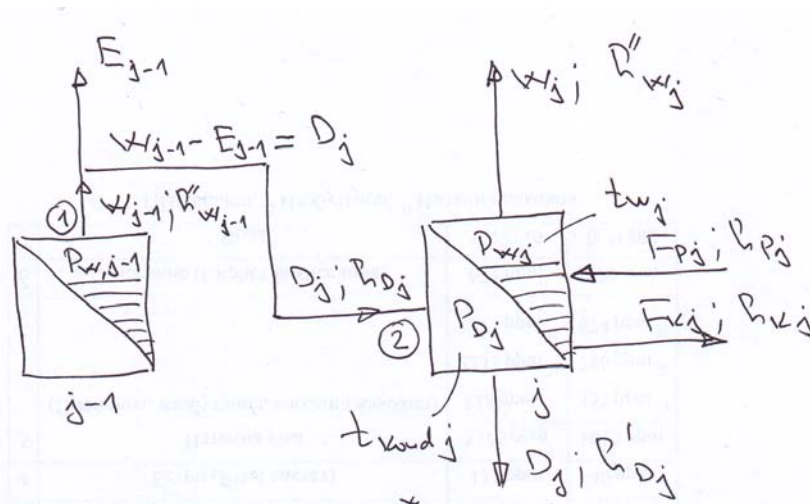 E_{j-1}
W_{j-1} - E_{j-1} = D_j
① W_{j-1}, h''_{W_{j-1}}
P_{W,j-1}
j-1
W_j ; h''_{W_j}
t_{W_j}
P_{W_j}
F_{Pj} ; h_{Pj}
D_j ; h_{Dj}
F_{Kj} ; h_{Kj}
P_{Dj}
②
j
t_{kond j}
D_j ; h_{Dj}